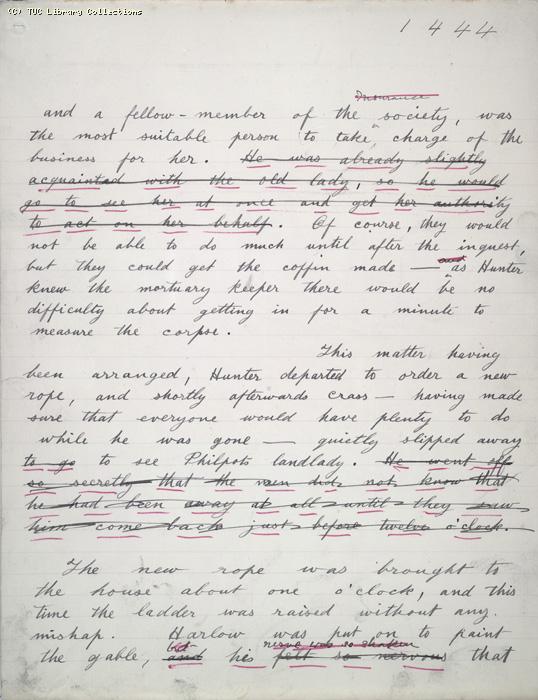 (C) TUC Library Collections
1444
Insurance
and a fellow-member of the society, was
the most suitable person to take charge of the
business for her. He was already slightly
acquainted with the old lady, so he would
go to see her at once and get her authority
to act on her behalf. Of course, they would
not be able to do much until after the inquest,
but they could get the coffin made — and as Hunter
knew the mortuary keeper there would be no
difficulty about getting in for a minute to
measure the corpse.
This matter having
been arranged, Hunter departed to order a new
rope, and shortly afterwards Crass — having made
sure that everyone would have plenty to do
while he was gone — quietly slipped away
to go to see Philpots landlady. He went off
so secretly that the men did not know that
he had been away at all until they saw
him come back just before twelve o'clock.
The new rope was brought to
the house about one o'clock, and this
time the ladder was raised without any
mishap. Harlow was put on to paint
but nerve was so shaken
the gable, and his felt so nervous that